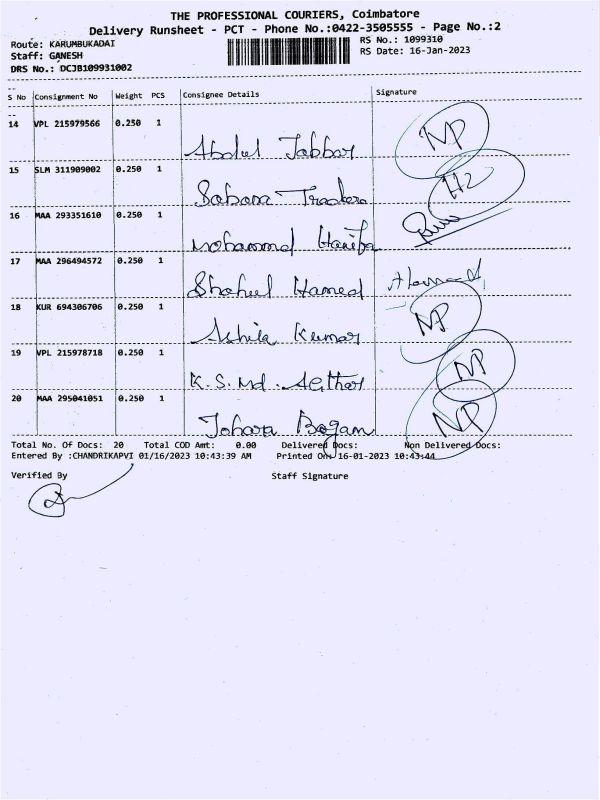 THE PROFESSIONAL COURIERS, Coimbatore
Delivery Runsheet - PCT - Phone No.:0422-3505555 - Page No.:2
Route: KARUMBUKADAI RS No.: 1099310
Staff: GANESH RS Date: 16-Jan-2023
DRS No.: DCJB109931002
S No Consignment No Weight PCS Consignee Details Signature
14 VPL 215979566 0.250 1 Abdul Jabbar NP
15 SLM 311909002 0.250 1 Sabana Traders
16 MAA 293351610 0.250 1 Mohammed Hanifa
17 MAA 296494572 0.250 1 Shaheel Hameed
18 KUR 694306706 0.250 1 Ashik Kumar NP
19 VPL 215978718 0.250 1 K.S. Md. NP
20 MAA 295041051 0.250 1 Johara Begam NP
Total No. Of Docs: 20 Total COD Amt: 0.00 Delivered Docs: Non Delivered Docs:
Entered By :CHANDRIKAPVI 01/16/2023 10:43:39 AM Printed On: 16-01-2023 10:43:44
Verified By Staff Signature